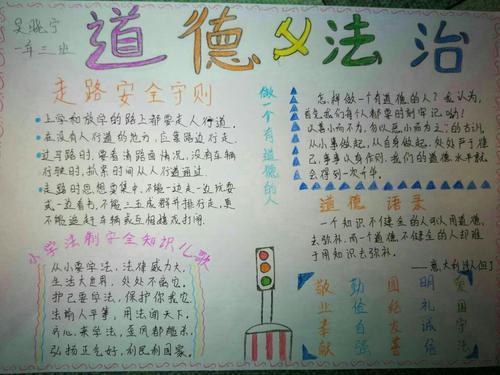 吴晓宁
一年三班
道德义法治
走路安全守则
上学和放学的路上都要走人行道。
在没有人行道的地方，应靠路边行走。
过马路时，要看清路面情况，没有车辆
行驶时，抓紧时间从人行道通过。
走路时思想要集中，不能一边走一边玩耍
或一边看书，不能三五成群并排行走，更
不能追赶车辆或互相嬉戏打闹。
做一个有道德的人
怎样做一个有道德的人？我认为，
首先我们每个人都要时刻牢记 勿以
以善小而不为，勿以恶小而为之 的古训，
从小事做起，从自身做起，处处严于律
己，事事以身作则，我们的道德水平就
会得到一次升华。
道德语录
一个知识不健全的人可以用道德
去弥补，而一个道德不健全的人却难
于用知识去弥补。
——意大利诗人但丁
小学法制安全知识儿歌
从小要学法，法律威力大。
生活大世界，处处不离它。
护己要学法，保护你我它。
法制人平等，用法闯天下。
齐心来学法，歪风都能杀。
弘扬正气好，利民利国家。
爱国守法
明礼诚信
团结友善
勤俭自强
敬业奉献